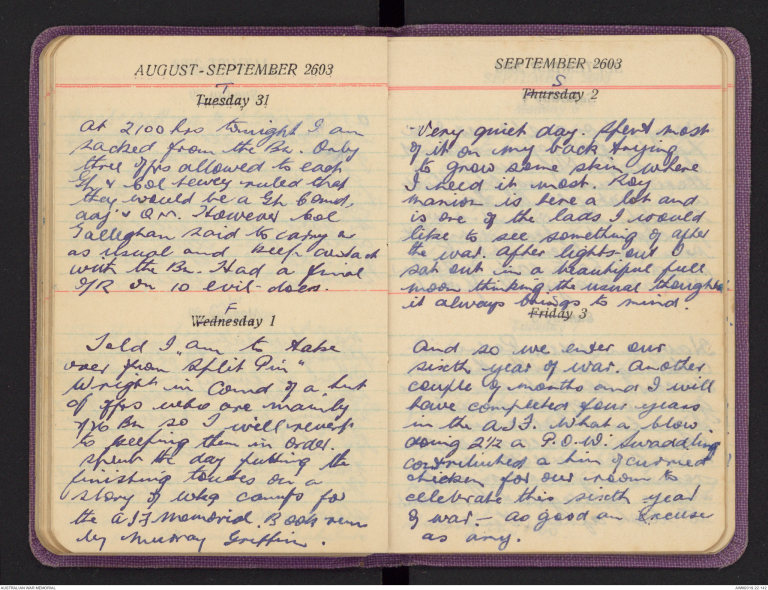 AUGUST-SEPTEMBER 2603
T
Tuesday 31
At 2100 hrs tonight I am
sacked from the Bn. Only
three offrs allowed to each
& Col ruled that
they would be a Gp Comd,
adj & QM. However Col
Galleghan said to carry on
as usual and keep contact
with the Bn. Had a final
O/R on 10 evil-doers.
F
Wednesday 1
Told I am to take
over from "Split Pin"
Wright in Comd of a hut
of offrs who are mainly
Bn so I will
to keeping them in order.
Spent the day putting the
finishing touches on a
story of camps for
the AIF Memorial Book run
by Murray Griffin.
SEPTEMBER 2603
S
Thursday 2
Very quiet day. Spent most
of it on my back trying
to grow some skin where
I need it most. Roy
is here a lot and
is one of the lads I would
like to see something of after
the war. After lights-out I
sat out in a beautiful full
moon thinking the usual thoughts
it always brings to mind.
Friday 3
And so we enter our
sixth year of war. Another
couple of months and I will
have completed four years
in the AIF. What a blow
doing 2½ a P.O.W! Swaddling
contributed a tin of curried
chicken for our room to
celebrate this sixth year
of war – as good an excuse
as any.
AUSTRALIAN WAR MEMORIAL